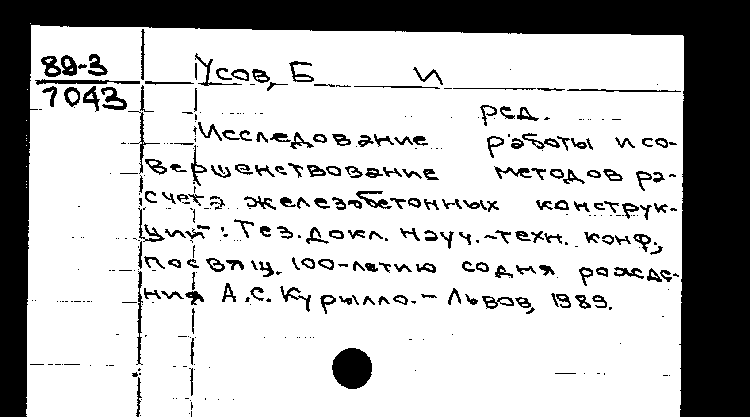 89-3
7043
Усов, Б И
ред.
Исследование работы и со-
вершенствование методов ра-
счета железобетонных конструк-
ций: Тез. докл. науч.-техн. конф.,
посвящ. 100-летию со дня рожде-
ния А.С. Курылло. - Львов, 1989.